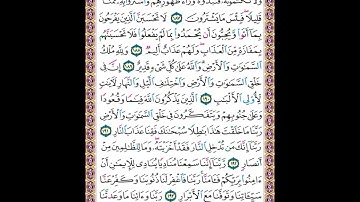 ولا تكتمونه فنبذوه وراء ظهورهم واشتروا به ثمنا
قليلا فبئس ما يشترون ١٨٧ لا تحسبن الذين يفرحون
بما أتوا ويحبون أن يحمدوا بما لم يفعلوا فلا تحسبنهم
بمفازة من العذاب ولهم عذاب أليم ١٨٨ ولله ملك
السماوات والأرض والله على كل شيء قدير ١٨٩ إن في
خلق السماوات والأرض واختلاف الليل والنهار لآيات
لأولي الألباب ١٩٠ الذين يذكرون الله قياما وقعودا
وعلى جنوبهم ويتفكرون في خلق السماوات والأرض
ربنا ما خلقت هذا باطلا سبحانك فقنا عذاب النار ١٩١
ربنا إنك من تدخل النار فقد أخزيته وما للظالمين من
أنصار ١٩٢ ربنا إننا سمعنا مناديا ينادي للإيمان أن
آمنوا بربكم فآمنا ربنا فاغفر لنا ذنوبنا وكفر عنا
سيئاتنا وتوفنا مع الأبرار ١٩٣ ربنا وآتنا ما وعدتنا